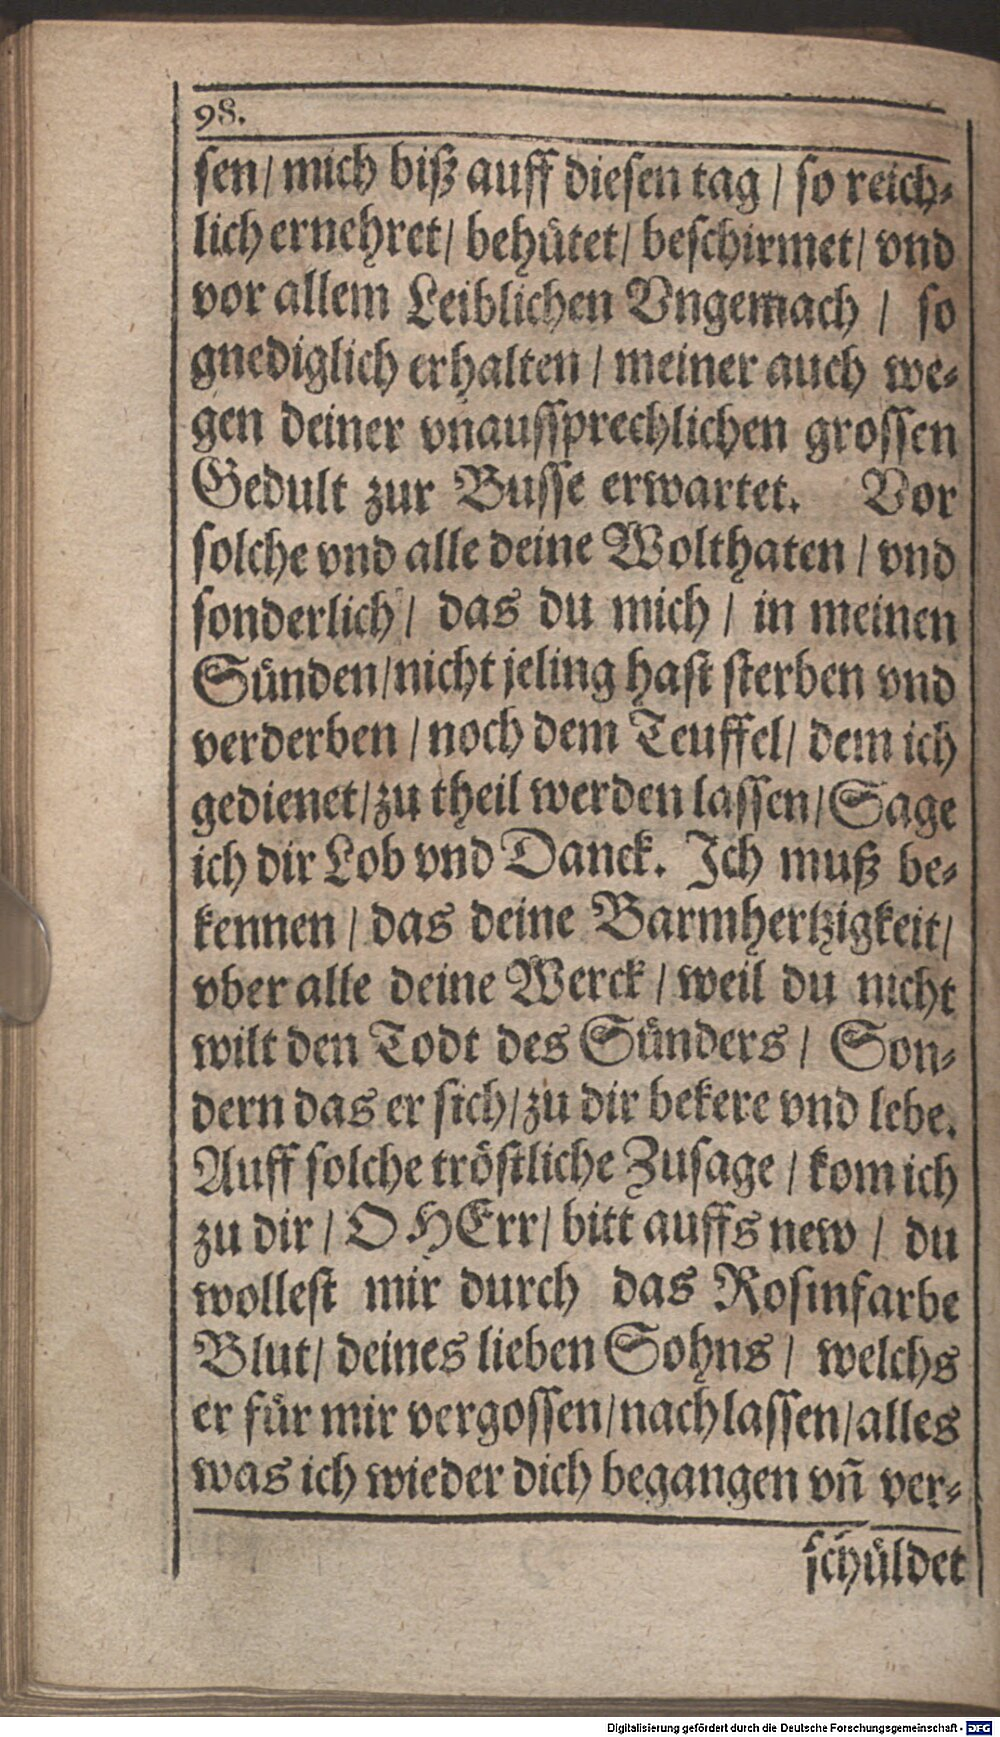 98.
sen/ mich biß auff diesen tag / so reich-
lich ernehret/ behütet/ beschirmet/ vnd
vor allem Leiblichen Vngemach / so
gnediglich erhalten / meiner auch we-
gen deiner vnaussprechlichen grossen
Gedult zur Busse erwartet. Vor
solche vnd alle deine Wolthaten / vnd
sonderlich / das du mich / in meinen
Sünden/nicht jeling hast sterben vnd
verderben / noch dem Teuffel/ dem ich
gedienet/zu theil werden lassen/Sage
ich dir Lob vnd Danck. Ich muß be-
kennen / das deine Barmhertzigkeit/
vber alle deine Werck / weil du nicht
wilt den Todt des Sünders / Son-
dern das er sich/zu dir bekere vnd lebe.
Auff solche tröstliche Zusage / kom ich
zu dir / O HErr/ bitt auffs new / du
wollest mir durch das Rosinfarbe
Blut/ deines lieben Sohns / welchs
er für mir vergossen/nachlassen/alles
was ich wieder dich begangen vñ ver-
schüldet
Digitalisierung gefördert durch die Deutsche Forschungsgemeinschaft - DFG